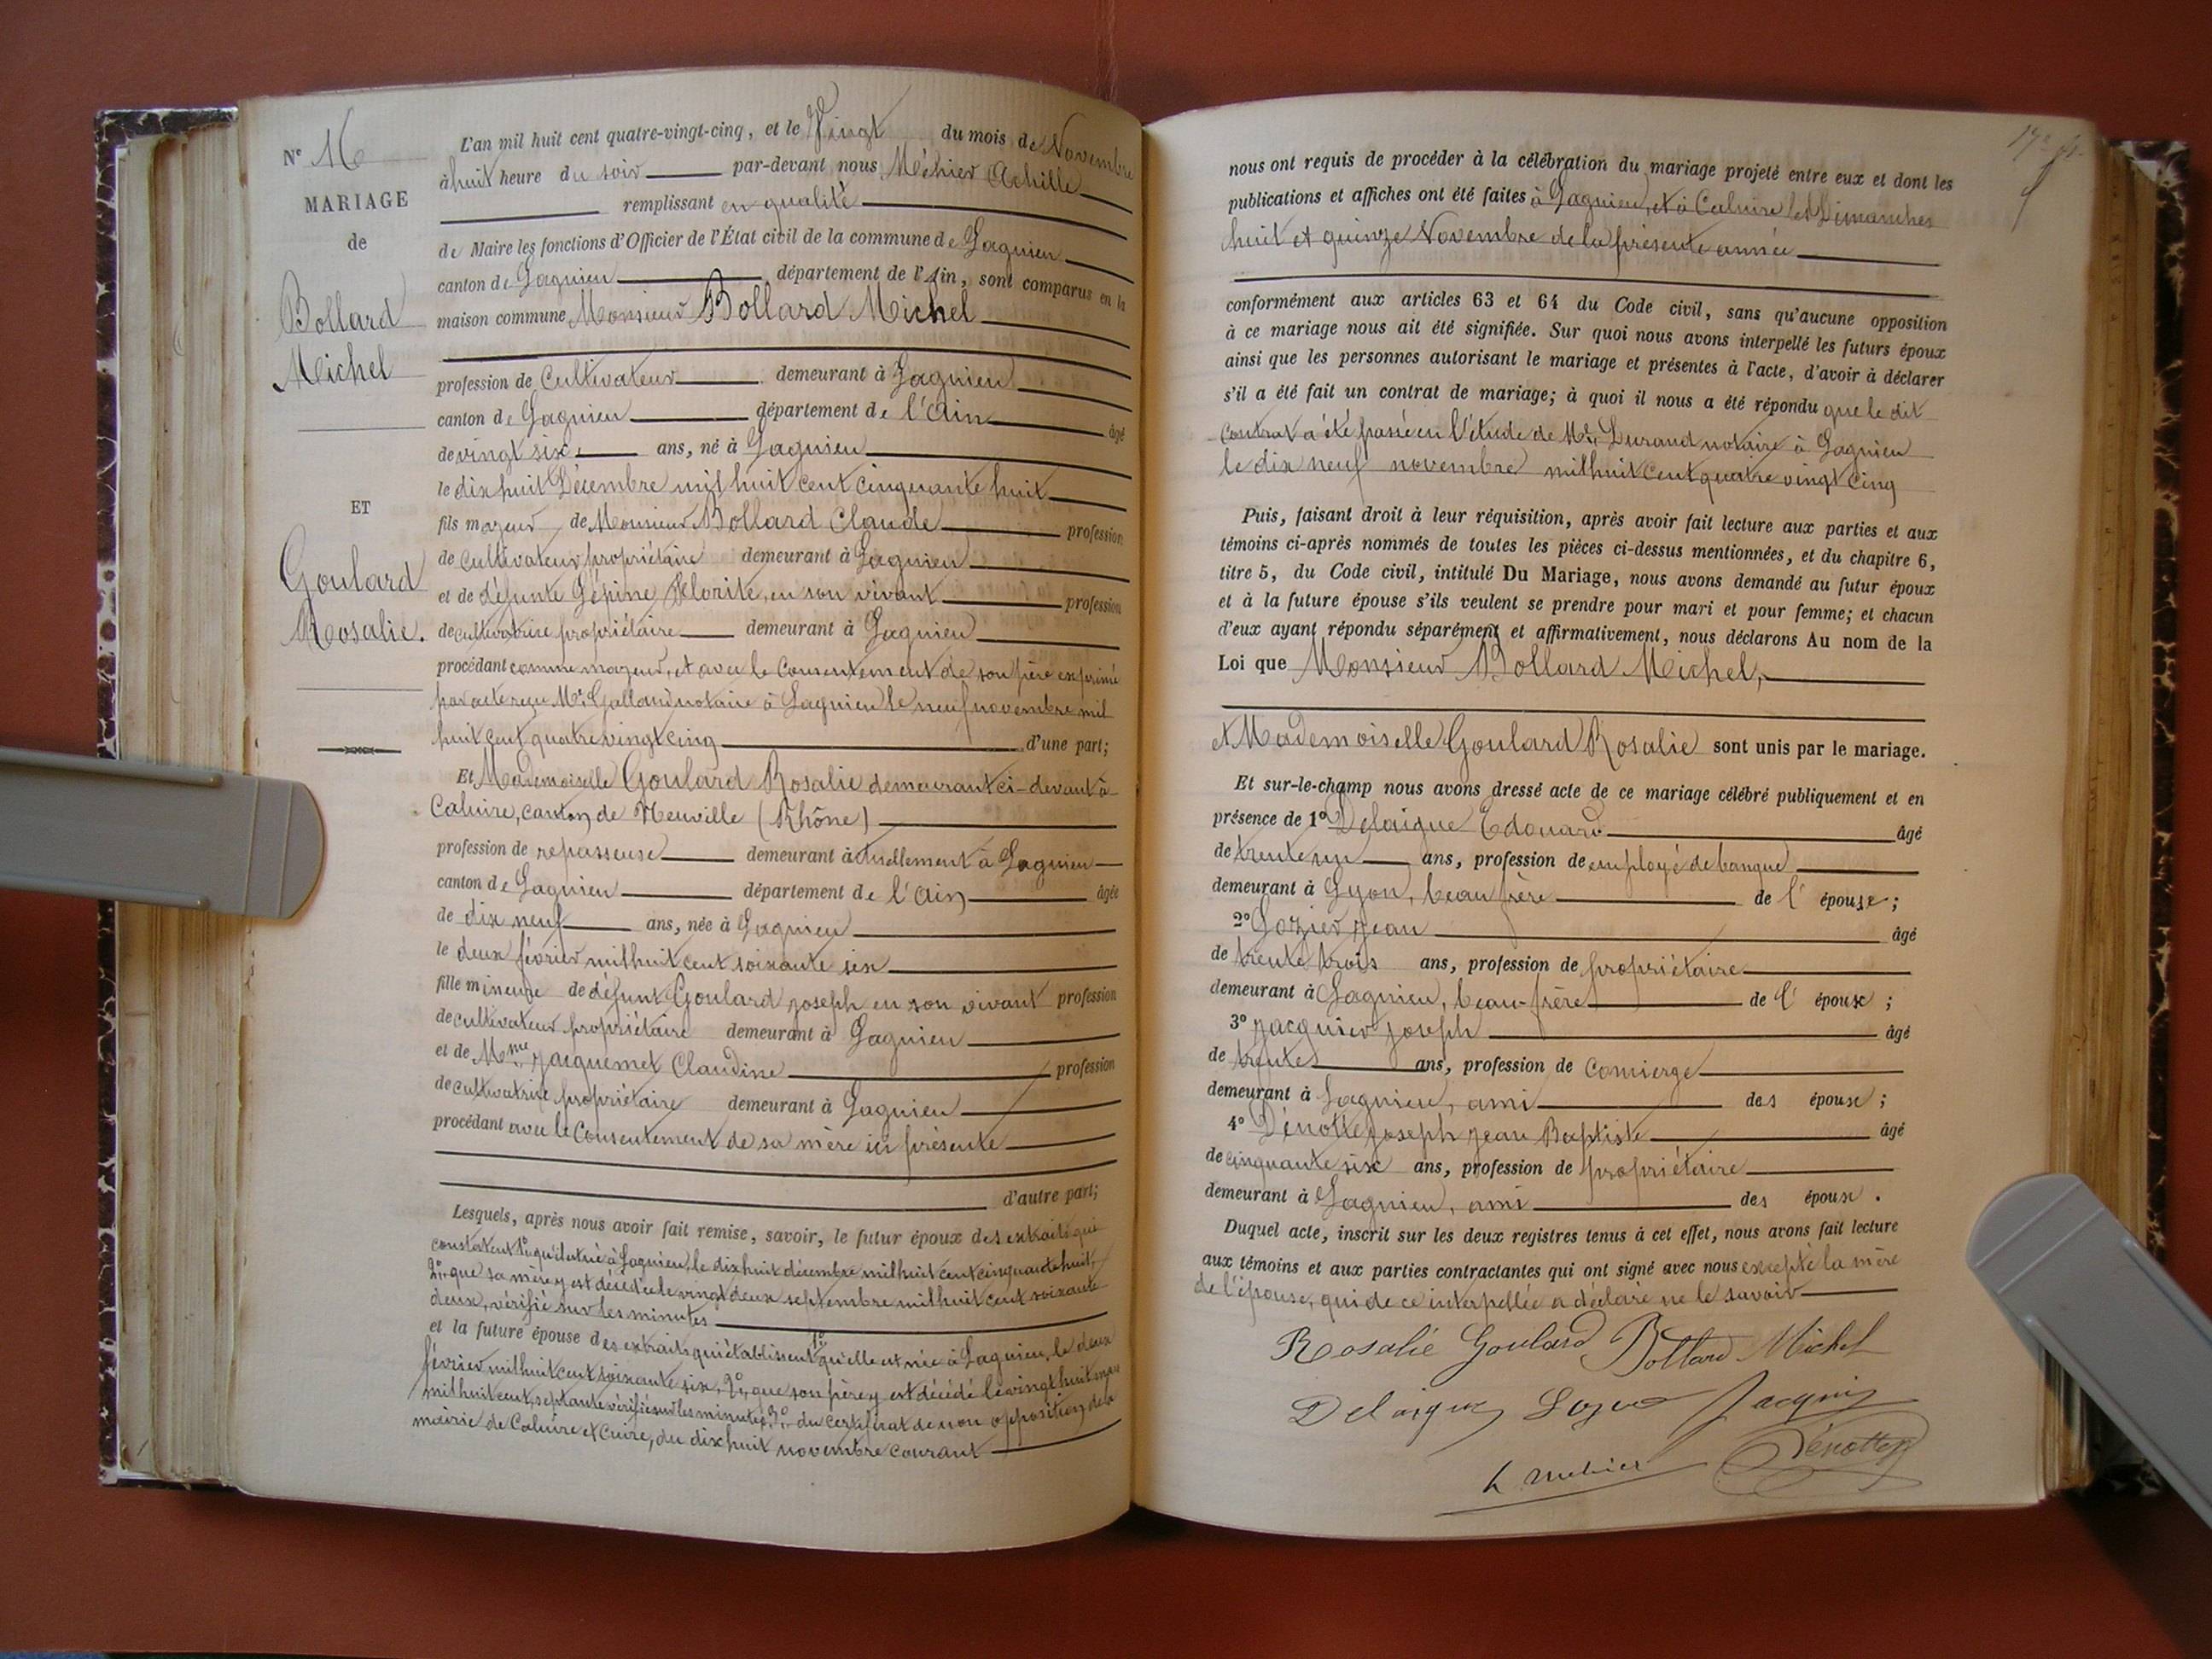 N° 16
MARIAGE
de
Bollard
Michel
ET
Goulard
Rosalie.
L'an mil huit cent quatre-vingt-cinq, et le Vingt du mois de Novembre
à huit heure du soir par-devant nous Méhier Achille
remplissant en qualité
de Maire les fonctions d'Officier de l'État civil de la commune de Lagnieu
canton de Lagnieu département de l'Ain, sont comparus en la
maison commune Monsieur Bollard Michel
profession de Cultivateur demeurant à Lagnieu
canton de Lagnieu département de l'Ain âgé
de vingt six ans, né à Lagnieu
le dix huit Décembre mil huit cent cinquante huit
fils majeur de Monsieur Bollard Claude profession
de Cultivateur propriétaire demeurant à Lagnieu
et de défunte Gépine Florite, en son vivant profession
de cultivatrice propriétaire demeurant à Lagnieu
procédant comme majeur, et avec le Consentement de son père exprimé
par acte reçu Me Galland notaire à Lagnieu le neuf novembre mil
huit cent quatre vingt cinq d'une part;
Et Mademoiselle Goulard Rosalie demeurant ci-devant à
Caluire, canton de Neuville (Rhône)
profession de repasseuse demeurant actuellement à Lagnieu
canton de Lagnieu département de l'Ain âgée
de dix neuf ans, née à Lagnieu
le deux février mil huit cent soixante six
fille mineure de défunt Goulard Joseph en son vivant profession
de cultivateur propriétaire demeurant à Lagnieu
et de Mme Jacquemet Claudine profession
de cultivatrice propriétaire demeurant à Lagnieu
procédant avec le Consentement de sa mère ici présente
d'autre part;
Lesquels, après nous avoir fait remise, savoir, le futur époux des extraits qui
constatent 1° qu'il est né à Lagnieu, le dix huit décembre mil huit cent cinquante huit,
2° que sa mère y est décédée le vingt deux septembre mil huit cent soixante
deux, vérifié sur les minutes
et la future épouse des extraits qui établissent 1° qu'elle est née à Lagnieu, le deux
février mil huit cent soixante six, 2° que son père y est décédé le vingt huit mars
mil huit cent septante vérifié sur les minutes, 3° du certificat de non opposition de la
mairie de Caluire et Cuire, du dix huit novembre courant
nous ont requis de procéder à la célébration du mariage projeté entre eux et dont les
publications et affiches ont été faites à Lagnieu, et à Caluire les Dimanches
huit et quinze Novembre de la présente année
conformément aux articles 63 et 64 du Code civil, sans qu'aucune opposition
à ce mariage nous ait été signifiée. Sur quoi nous avons interpellé les futurs époux
ainsi que les personnes autorisant le mariage et présentes à l'acte, d'avoir à déclarer
s'il a été fait un contrat de mariage; à quoi il nous a été répondu que le dit
contrat a été passé en l'étude de Me Durand notaire à Lagnieu
le dix neuf novembre mil huit cent quatre vingt cinq
Puis, faisant droit à leur réquisition, après avoir fait lecture aux parties et aux
témoins ci-après nommés de toutes les pièces ci-dessus mentionnées, et du chapitre 6,
titre 5, du Code civil, intitulé Du Mariage, nous avons demandé au futur époux
et à la future épouse s'ils veulent se prendre pour mari et pour femme; et chacun
d'eux ayant répondu séparément et affirmativement, nous déclarons Au nom de la
Loi que Monsieur Bollard Michel,
et Mademoiselle Goulard Rosalie sont unis par le mariage.
Et sur-le-champ nous avons dressé acte de ce mariage célébré publiquement et en
présence de 1° Delaigue Edouard âgé
de trente un ans, profession de employé de banque
demeurant à Lyon, beau frère de l'épouse;
2° Lozier Jean âgé
de trente trois ans, profession de propriétaire
demeurant à Lagnieu, beau-frère de l'épouse;
3° Jacquier Joseph âgé
de trente ans, profession de Concierge
demeurant à Lagnieu, ami des époux;
4° Dénotte Joseph Jean Baptiste âgé
de cinquante six ans, profession de propriétaire
demeurant à Lagnieu, ami des époux.
Duquel acte, inscrit sur les deux registres tenus à cet effet, nous avons fait lecture
aux témoins et aux parties contractantes qui ont signé avec nous excepté la mère
de l'épouse, qui de ce interpellée a déclaré ne le savoir
Rosalie Goulard Bollard Michel
Delaigue Jacquier
Dénotte